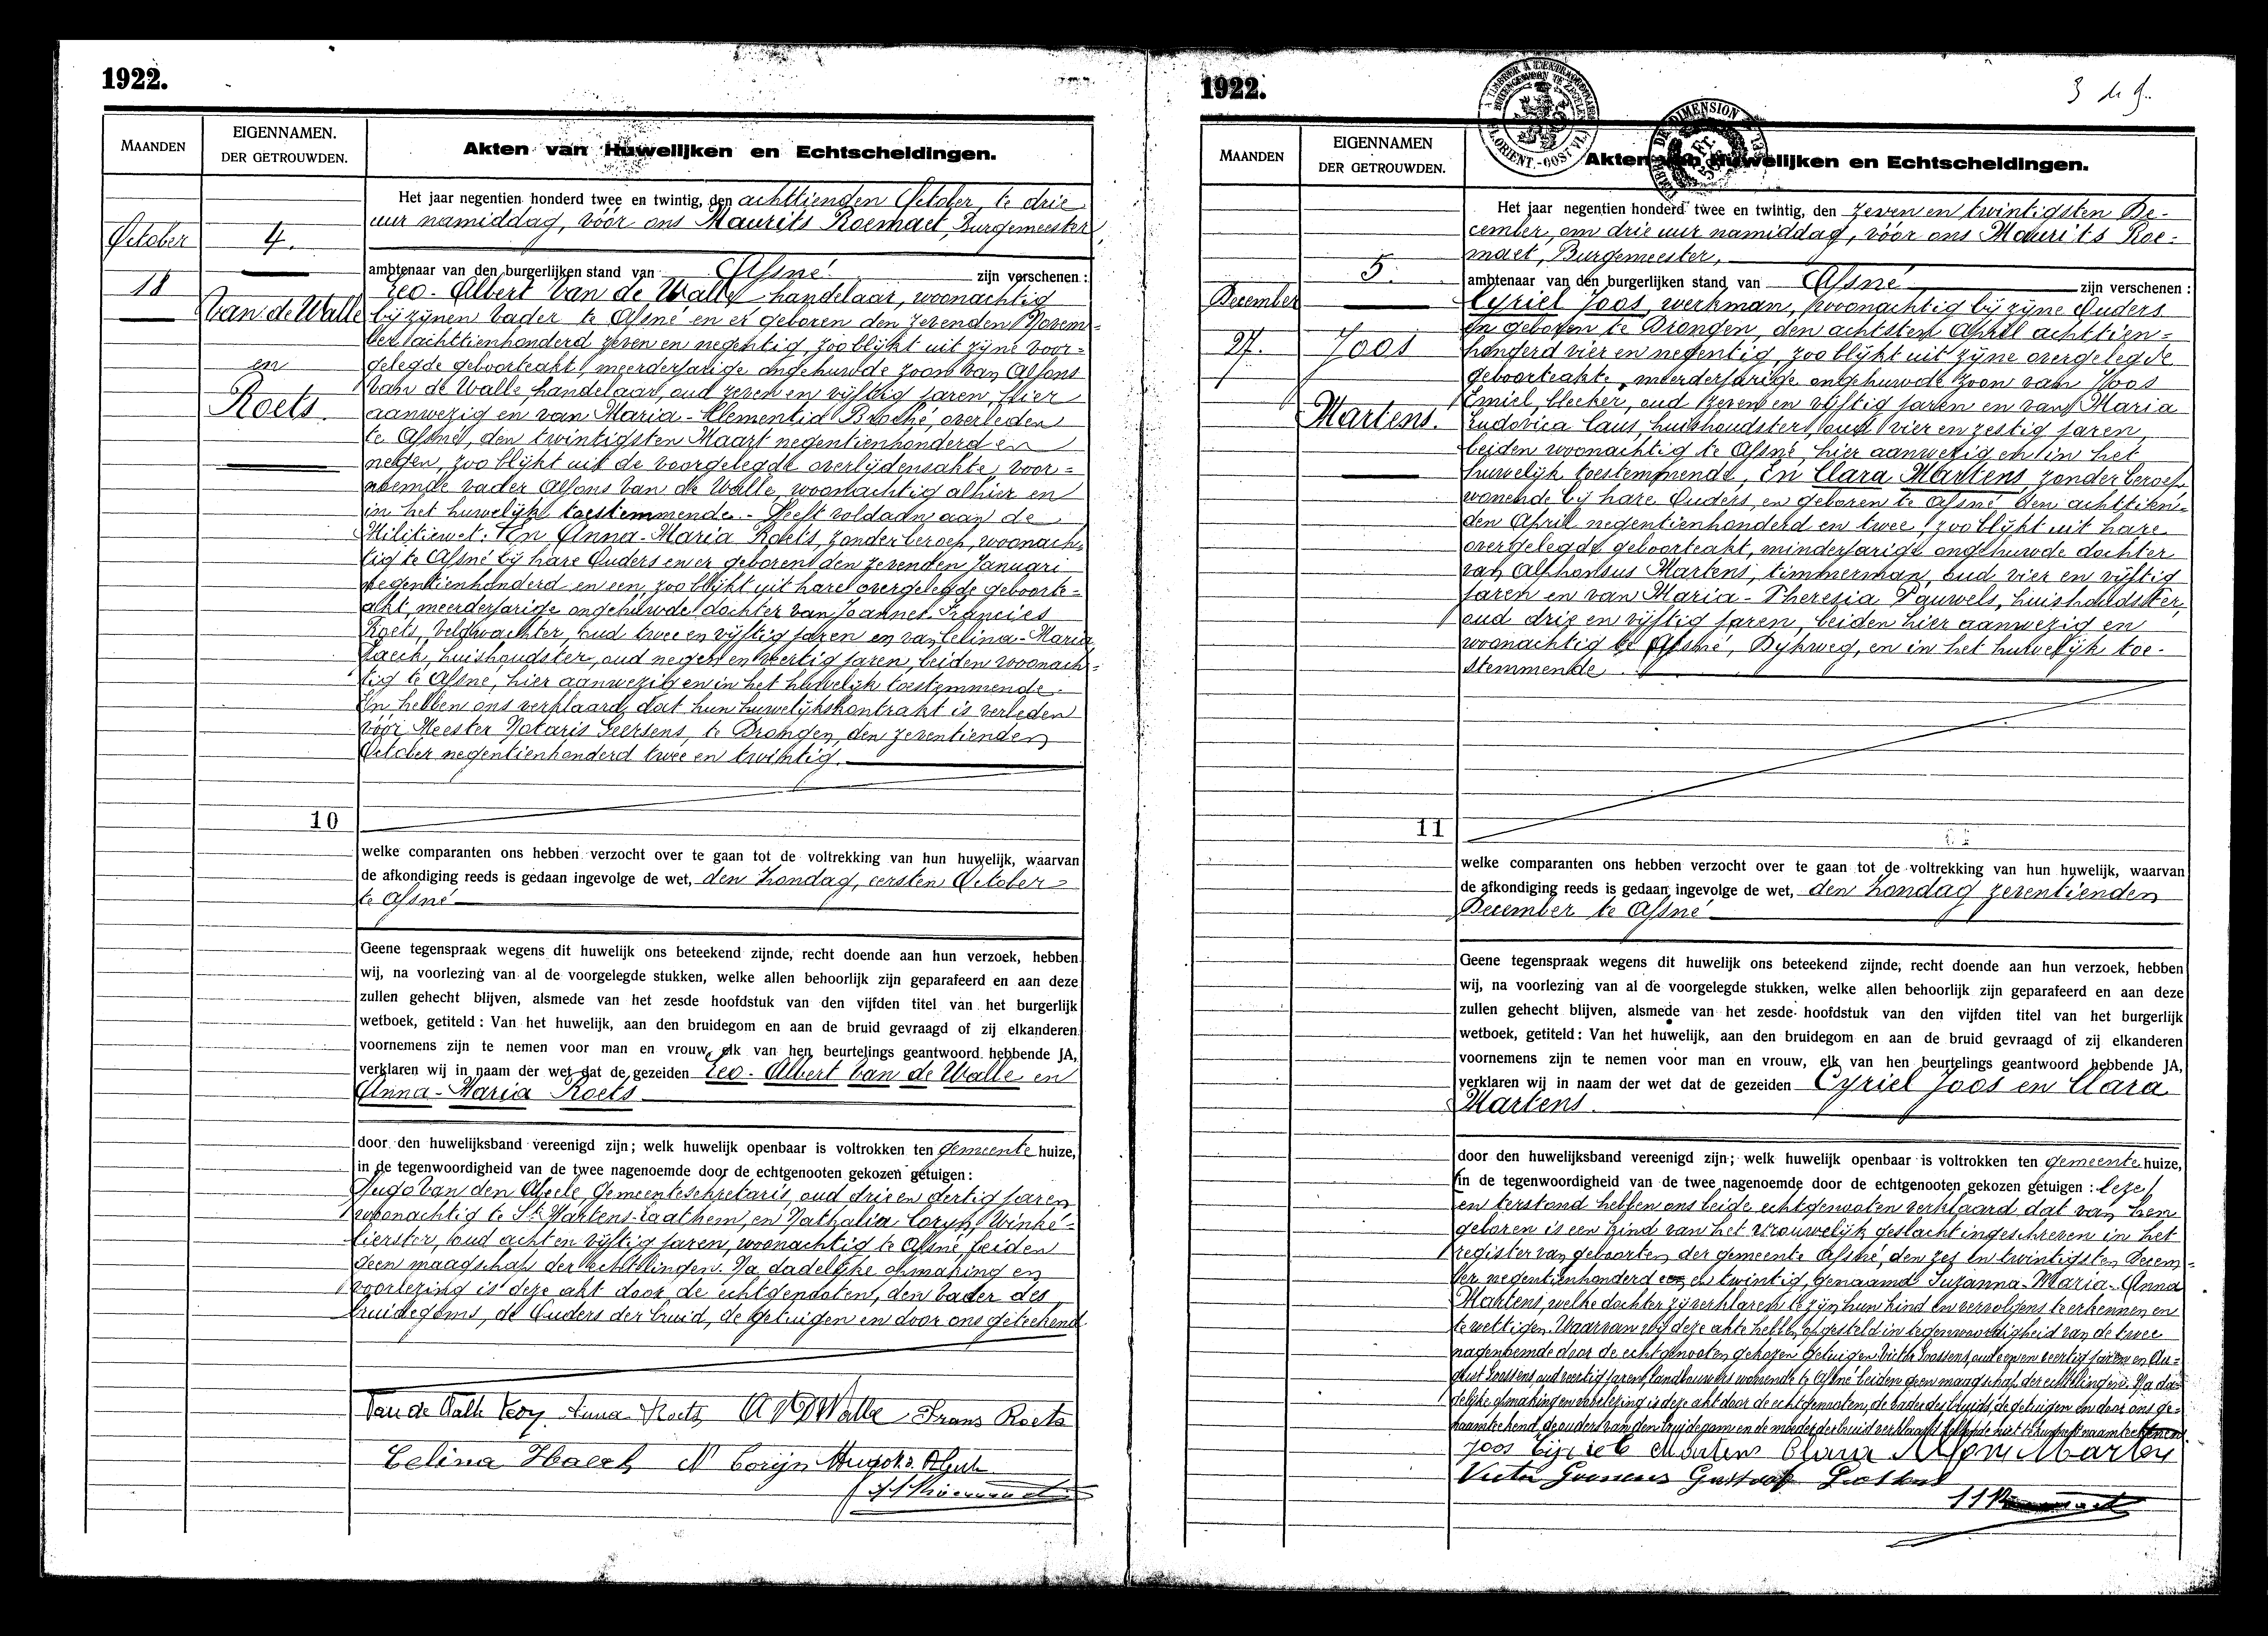 1922.
MAANDEN
EIGENNAMEN.
DER GETROUWDEN.
Akten van Huwelijken en Echtscheidingen.
October
18
4.
Van de Walle
en
Roets.
10
Het jaar negentien honderd twee en twintig, den achttienden October, te drie
uur namiddag, vóór ons Maurits Roemaet, Burgemeester,
ambtenaar van den burgerlijken stand van Afsné zijn verschenen:
Leo-Albert Van de Walle handelaar, woonachtig
bij zijnen vader te Afsné en er geboren den zevenden Novem=
ber achttienhonderd zeven en negentig, zoo blijkt uit zijne voor=
gelegde geboorteakt, meerderjarige ongehuwde zoon van Alfons
Van de Walle, handelaar, oud zeven en vijftig jaren, hier
aanwezig en van Maria-Clementia Broché, overleden
te Afsné, den twintigsten Maart negentienhonderd en
negen, zoo blijkt uit de voorgelegde overlijdensakte, voor=
noemde vader Alfons Van de Walle, woonachtig alhier en
in het huwelijk toestemmende. - Heeft voldaan aan de
Militiewet. En Anna-Maria Roets, zonder beroep, woonach=
tig te Afsné bij hare Ouders en er geboren den zevenden Januari
negentienhonderd en een, zoo blijkt uit hare overgelegde geboorte=
akt, meerderjarige ongehuwde dochter van Joannes-Francies
Roets, Veldwachter, oud twee en vijftig jaren en van Celina-Maria
Haeck, huishoudster, oud negen en veertig jaren, beiden woonach=
tig te Afsné, hier aanwezig en in het huwelijk toestemmende.
En hebben ons verklaard dat hun huwelijkskontrakt is verleden
vóór Meester Notaris Geersens, te Drongen, den zeventienden
October negentienhonderd twee en twintig.
welke comparanten ons hebben verzocht over te gaan tot de voltrekking van hun huwelijk, waarvan
de afkondiging reeds is gedaan ingevolge de wet, den Zondag, eersten October
te Afsné
Geene tegenspraak wegens dit huwelijk ons beteekend zijnde, recht doende aan hun verzoek, hebben
wij, na voorlezing van al de voorgelegde stukken, welke allen behoorlijk zijn geparafeerd en aan deze
zullen gehecht blijven, alsmede van het zesde hoofdstuk van den vijfden titel van het burgerlijk
wetboek, getiteld: Van het huwelijk, aan den bruidegom en aan de bruid gevraagd of zij elkanderen
voornemens zijn te nemen voor man en vrouw, elk van hen beurtelings geantwoord hebbende JA,
verklaren wij in naam der wet dat de gezeiden Leo-Albert Van de Walle en
Anna-Maria Roets
door den huwelijksband vereenigd zijn; welk huwelijk openbaar is voltrokken ten gemeente huize,
in de tegenwoordigheid van de twee nagenoemde door de echtgenooten gekozen getuigen:
Hugo Van den Abeele, Gemeentesekretaris, oud drie en dertig jaren,
woonachtig te St Martens-Laathem, en Nathalia Coryn, Winke=
lierster, oud acht en vijftig jaren, woonachtig te Afsné, beiden
geen maagschap der echtelingen. Na dadelijke opmaking en
voorlezing is deze akt door de echtgenooten, den vader des
bruidegoms, de Ouders der bruid, de getuigen en door ons geteekend
Van de Walle Leoy Anna Roets A VD Walle Frans Roets
Celina Haeck N Coryn Hugo v. d. Abeele
M Roemaet
1922.
3 de
MAANDEN
EIGENNAMEN
DER GETROUWDEN.
Akten van Huwelijken en Echtscheidingen.
December
27.
5.
Joos
Martens.
11
Het jaar negentien honderd twee en twintig, den zeven en twintigsten De-
cember, om drie uur namiddag, vóór ons Maurits Roe-
maet, Burgemeester,
ambtenaar van den burgerlijken stand van Afsné zijn verschenen:
Cyriel Joos, werkman, woonachtig bij zijne Ouders
en geboren te Drongen, den achtsten April achttien=
honderd vier en negentig, zoo blijkt uit zijne overgelegde
geboorteakte, meerderjarige ongehuwde zoon van Joos
Emiel, bleeker, oud zeven en vijftig jaren en van Maria
Ludovica Caus, huishoudster, oud vier en zestig jaren,
beiden woonachtig te Afsné, hier aanwezig en in het
huwelijk toestemmende, En Clara Martens, zonder beroep,
wonende bij hare Ouders, en geboren te Afsné den achttien-
den April negentienhonderd en twee, zoo blijkt uit hare
overgelegde geboorteakt, minderjarige ongehuwde dochter
van Alphonsus Martens, timmerman, oud vier en vijftig
jaren en van Maria-Theresia Pauwels, huishoudster,
oud drie en vijftig jaren, beiden hier aanwezig en
woonachtig te Afsné, Dijkweg, en in het huwelijk toe-
stemmende
welke comparanten ons hebben verzocht over te gaan tot de voltrekking van hun huwelijk, waarvan
de afkondiging reeds is gedaan ingevolge de wet, den Zondag zeventienden
December te Afsné
Geene tegenspraak wegens dit huwelijk ons beteekend zijnde, recht doende aan hun verzoek, hebben
wij, na voorlezing van al de voorgelegde stukken, welke allen behoorlijk zijn geparafeerd en aan deze
zullen gehecht blijven, alsmede van het zesde hoofdstuk van den vijfden titel van het burgerlijk
wetboek, getiteld: Van het huwelijk, aan den bruidegom en aan de bruid gevraagd of zij elkanderen
voornemens zijn te nemen voor man en vrouw, elk van hen beurtelings geantwoord hebbende JA,
verklaren wij in naam der wet dat de gezeiden Cyriel Joos en Clara
Martens.
door den huwelijksband vereenigd zijn; welk huwelijk openbaar is voltrokken ten gemeente huize,
in de tegenwoordigheid van de twee nagenoemde door de echtgenooten gekozen getuigen:
en terstond hebben ons beide echtgenooten verklaard dat van hen
geboren is een kind van het vrouwelijk geslacht ingeschreven in het
register van geboorten der gemeente Afsné, den zes en twintigsten Decem=
ber negentienhonderd een en twintig, genaamd Suzanna-Maria-Anna
Martens, welke dochter zij verklaren te zijn hun kind en vervolgens te erkennen en
te wettigen. Waarvan wij deze akte hebben opgesteld in tegenwoordigheid van de twee
nagenoemde door de echtgenooten gekozen getuigen Victor Goossens, oud een en veertig jaren en Au=
gust Goossens, oud veertig jaren, landbouwers wonende te Afsné beiden geen maagschap der echtelingen. Na da=
delijke opmaking en voorlezing is deze akt door de echtgenooten, de vader des bruids, de getuigen en door ons ge=
naamteekend, de ouders van den bruidegom en de moeder der bruid verklaard hebbende niet te kunnen naamteekenen
Joos Cyriel Martens Clara Alfons Martens
Victor Goossens Gustaaf Goossens
M Roemaet